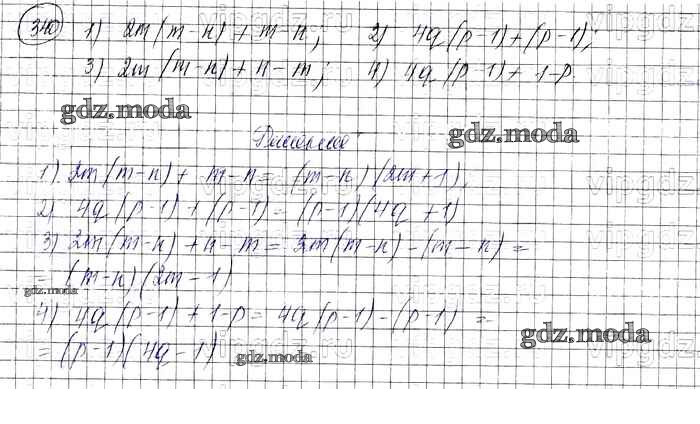 340 1) 2m(m-n) + m-n; 2) 4q(p-1)+(p-1);
3) 2m(m-n)+n-m; 4) 4q(p-1)+1-p.
gdz.moda gdz.moda
1) 2m(m-n)+ m-n = (m-n)(2m+1);
2) 4q(p-1)+(p-1) = (p-1)(4q+1)
3) 2m(m-n)+n-m = 2m(m-n)-(m-n) =
= (m-n)(2m-1)
gdz.moda
4) 4q(p-1)+1-p = 4q(p-1)-(p-1) =
gdz.moda
= (p-1)(4q-1)
gdz.moda